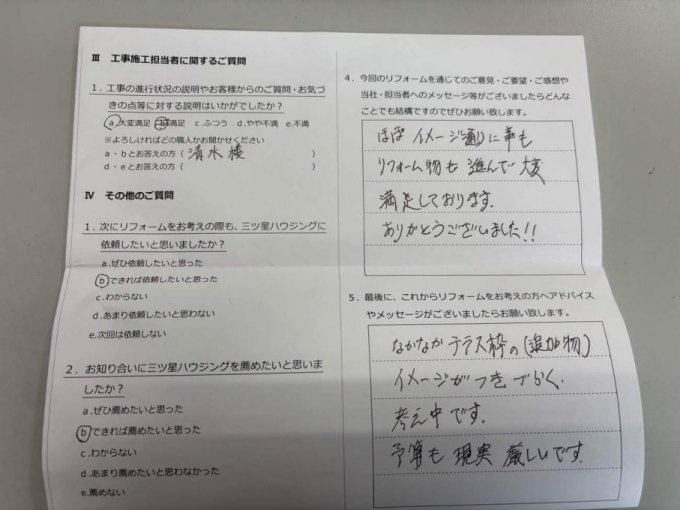 Ⅲ 工事施工担当者に関するご質問
1．工事の進行状況の説明やお客様からのご質問・お気づ
きの点等に対する説明はいかがでしたか？
a.大変満足 b.満足 c.ふつう d.やや不満 e.不満
※よろしければどの職人かお聞かせください
a・bとお答えの方（ 清水様 ）
d・eとお答えの方（ ）
Ⅳ その他のご質問
1．次にリフォームをお考えの際も、三ツ星ハウジングに
依頼したいと思いましたか？
a.ぜひ依頼したいと思った
b.できれば依頼したいと思った
c.わからない
d.あまり依頼したいと思わない
e.次回は依頼しない
2．お知り合いに三ツ星ハウジングを薦めたいと思いま
したか？
a.ぜひ薦めたいと思った
b.できれば薦めたいと思った
c.わからない
d.あまり薦めたいと思わなかった
e.薦めない
4．今回のリフォームを通じてのご意見・ご要望・ご感想や
当社・担当者へのメッセージ等がございましたらどんな
ことでも結構ですのでぜひお願い致します。
ほぼ イメージ通りに事も
リフォーム物も 進んで 大変
満足しております。
ありがとうございました!!
5．最後に、これからリフォームをお考えの方へアドバイス
やメッセージがございましたらお願い致します。
なかなか テラス枠の(追加物)
イメージが つきづらく、
考え中です。
予算も 現実 厳しいです。